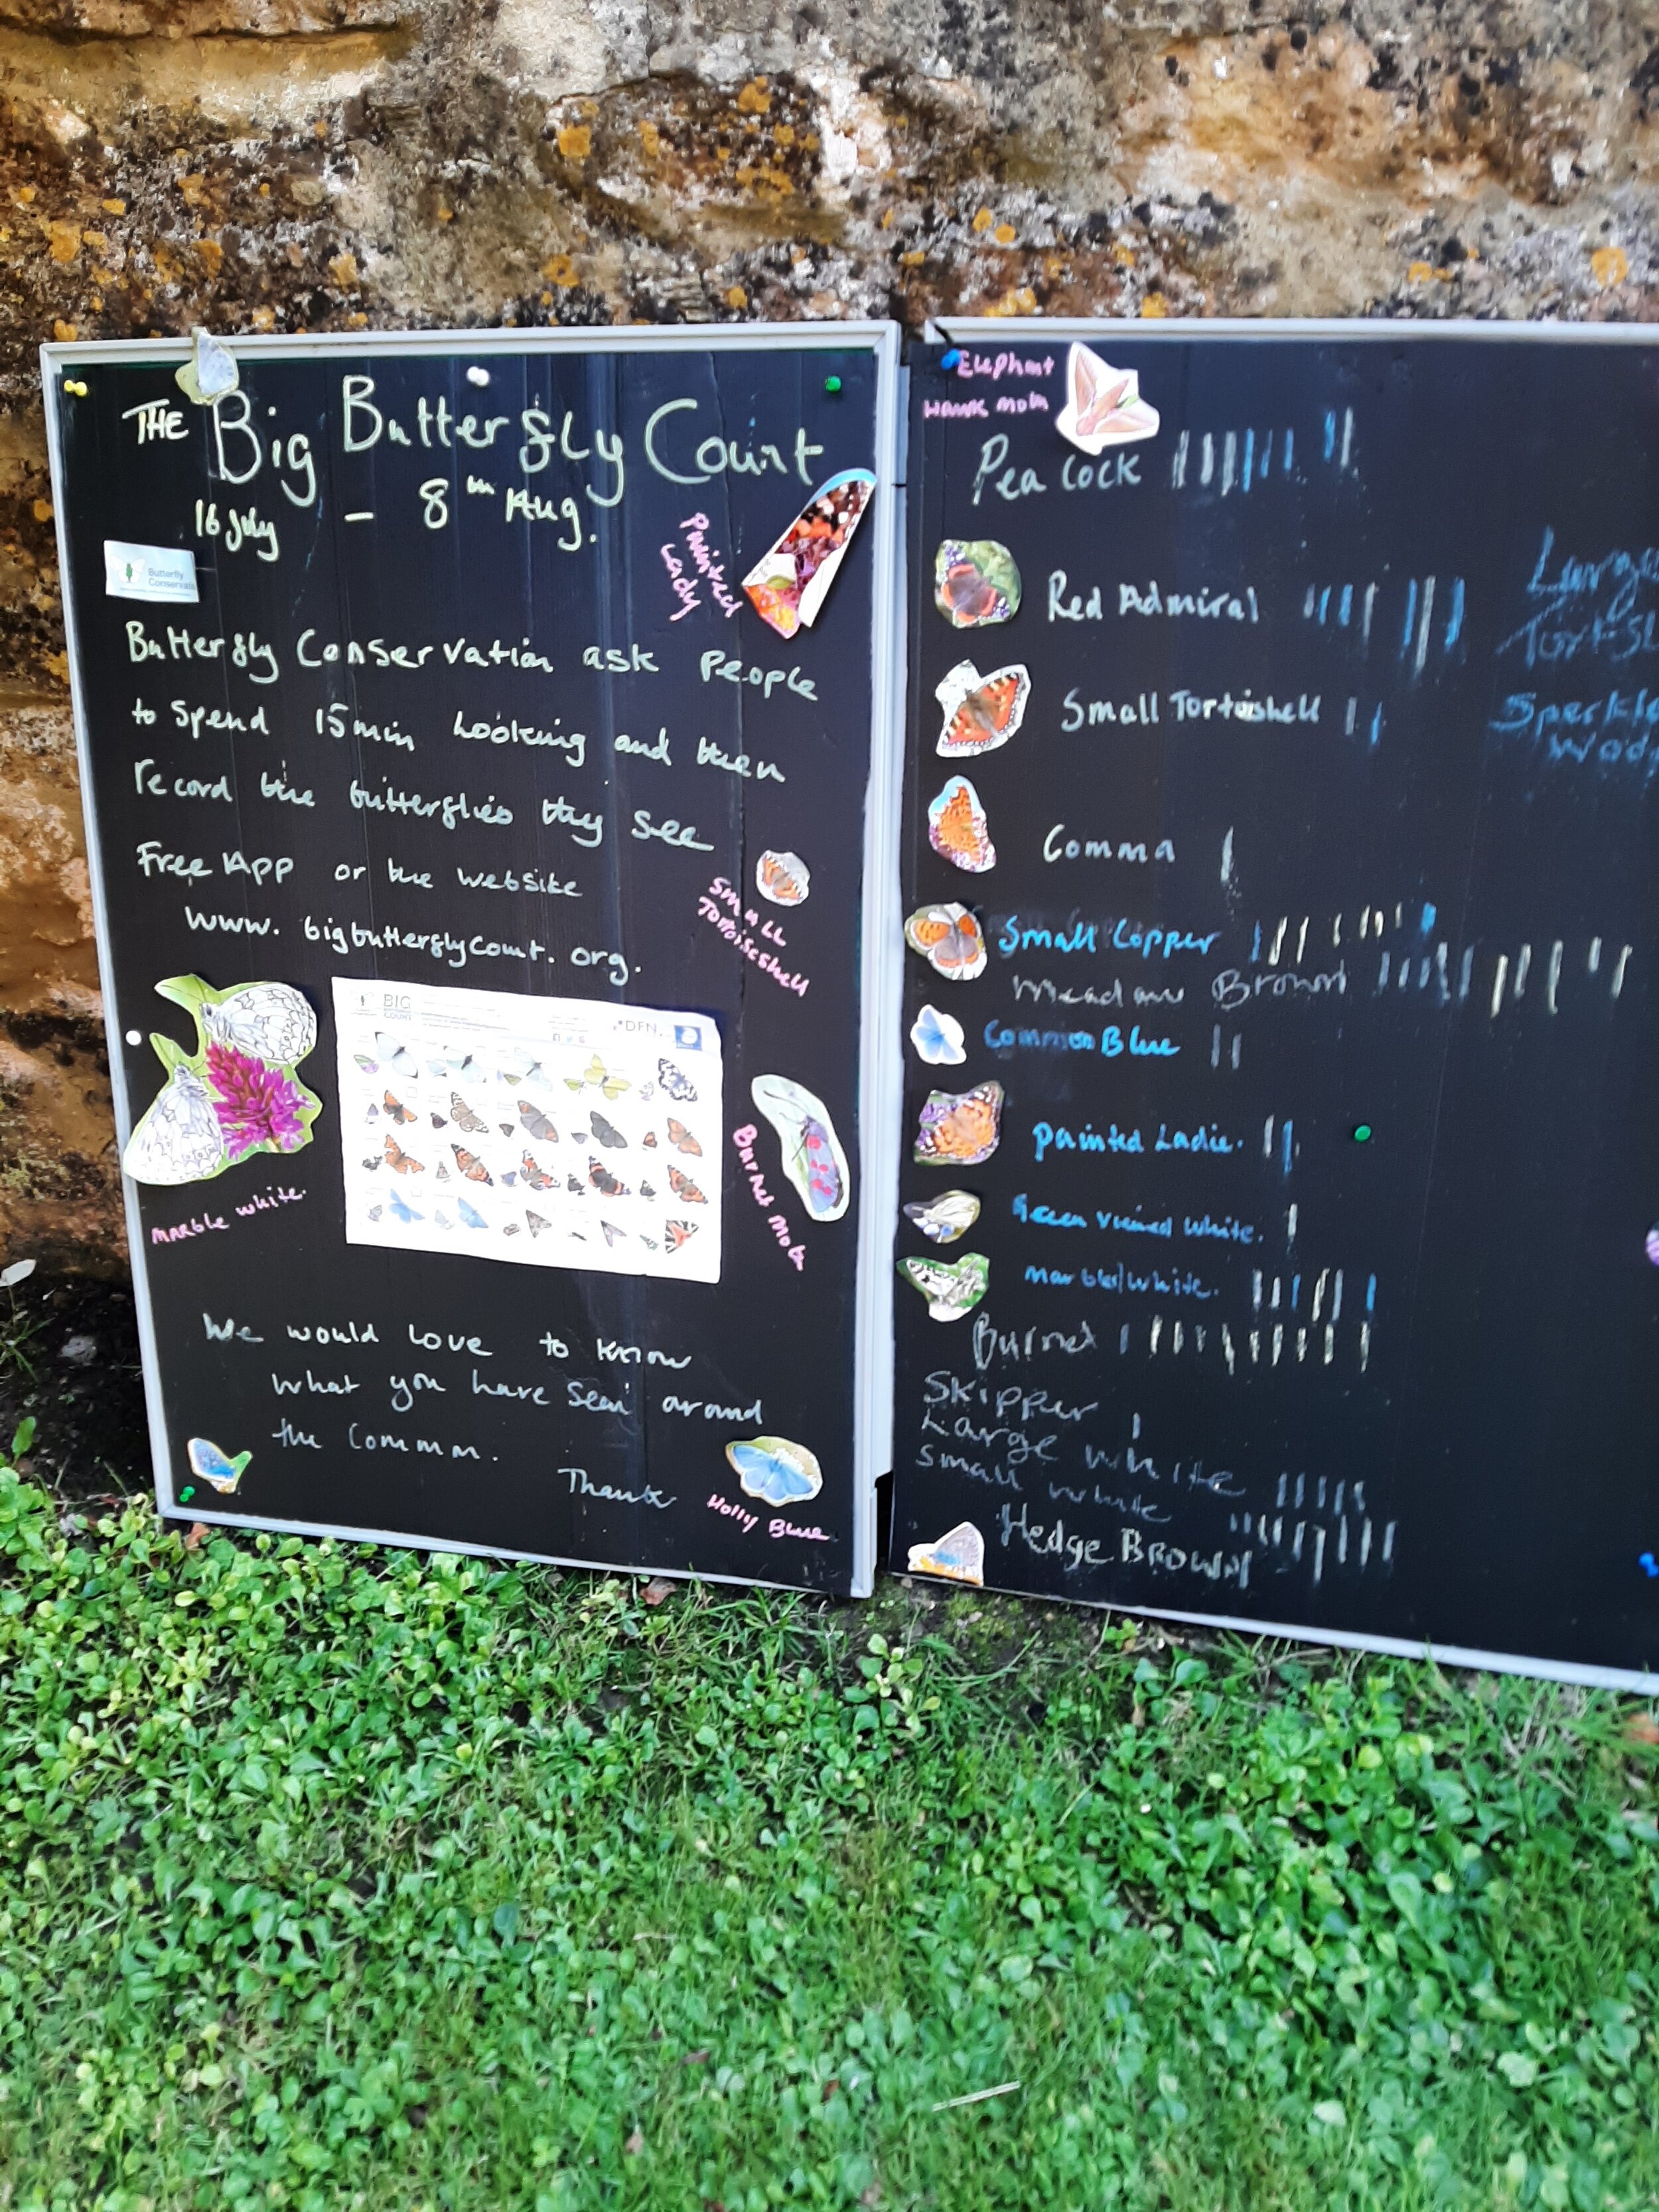 THE Big Butterfly Count
16 July - 8th Aug.
Painted
Lady
Butterfly
Conservation
Butterfly Conservation ask People
to Spend 15min Looking and then
record the butterflies they see
Free App or the website
www. bigbutterflycount. org.
Small
Tortoiseshell
BIG
COUNT
DFN
Marble white.
Burnet Moth
We would love to know
what you have seen around
the Comm.
Thank
Holly Blue
Elephant
Hawk Moth
Peacock
Red Admiral
Small Tortoishell
Comma
Small Copper
Meadow Brown
Common Blue
Painted Ladie.
Green veined white.
Marbled white.
Burnet
Skipper
Large white
Small white
Hedge BROWN
Large